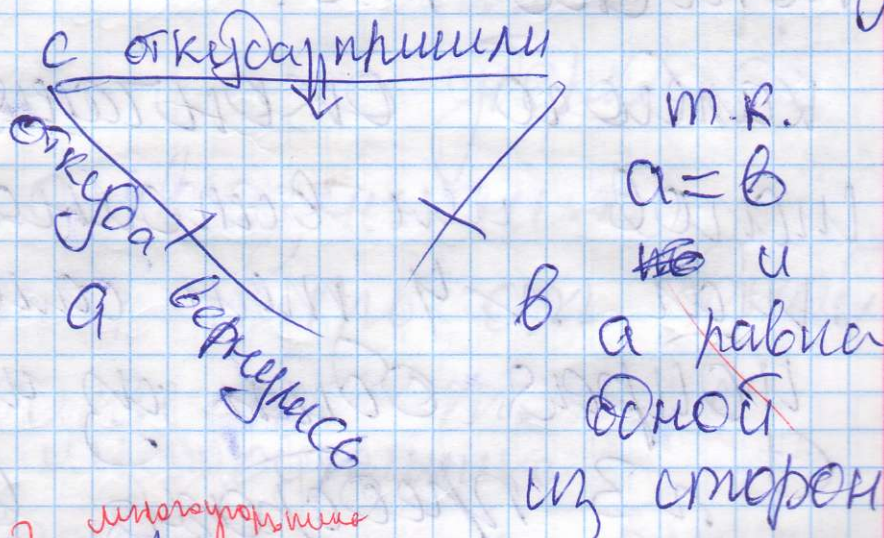 с откуда пришли
откуда
вернулись
а
в
т.к.
а = в
и
а равна
одной
из сторон
многоугольника